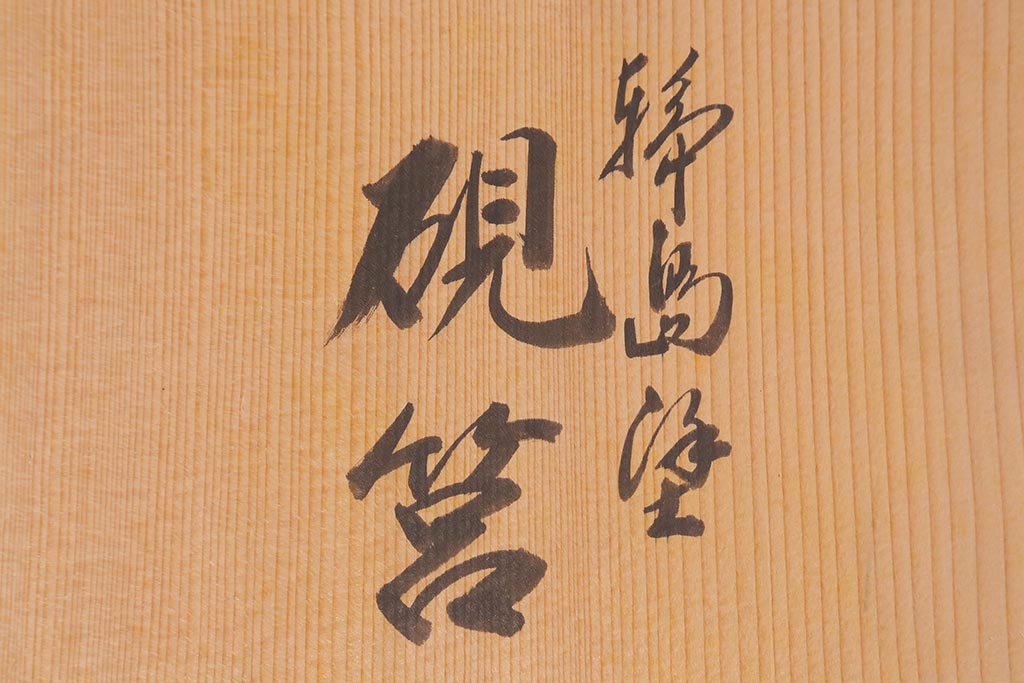 輪島塗
硯筥